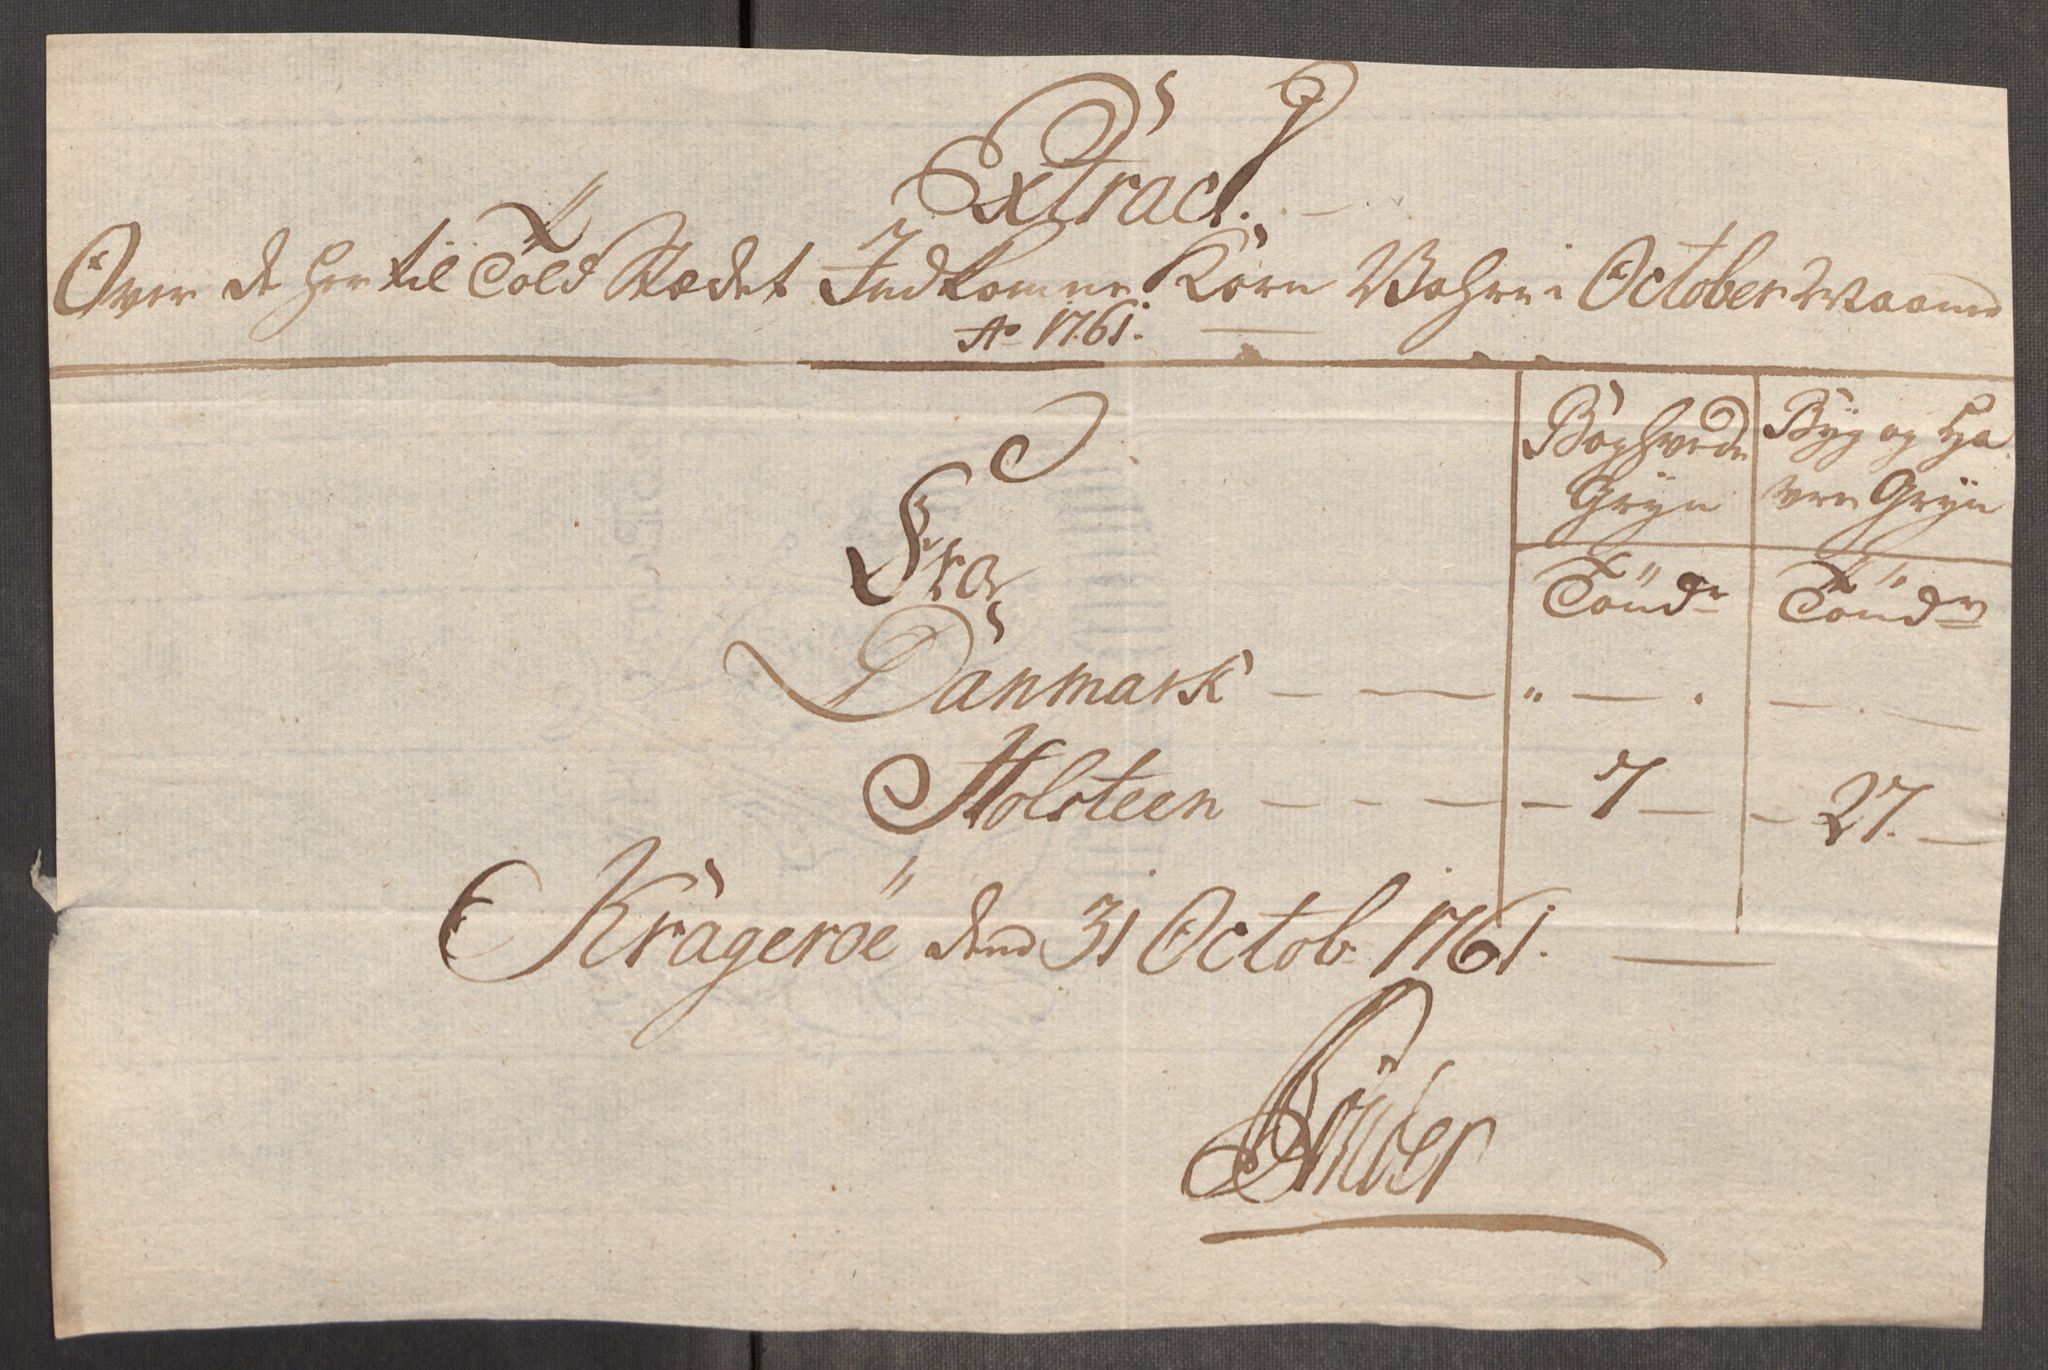 Extract.
Over de her til Told Stædet Indkomne Korn Wahre i October Maaned
Ao 1761.
Boghvede
Gryn
Byg og Ha
vre Gryn
Fra
Töndr
Töndr
Danmark
Holsteen 7 27.
Krageröe dend 31 Octob 1761.